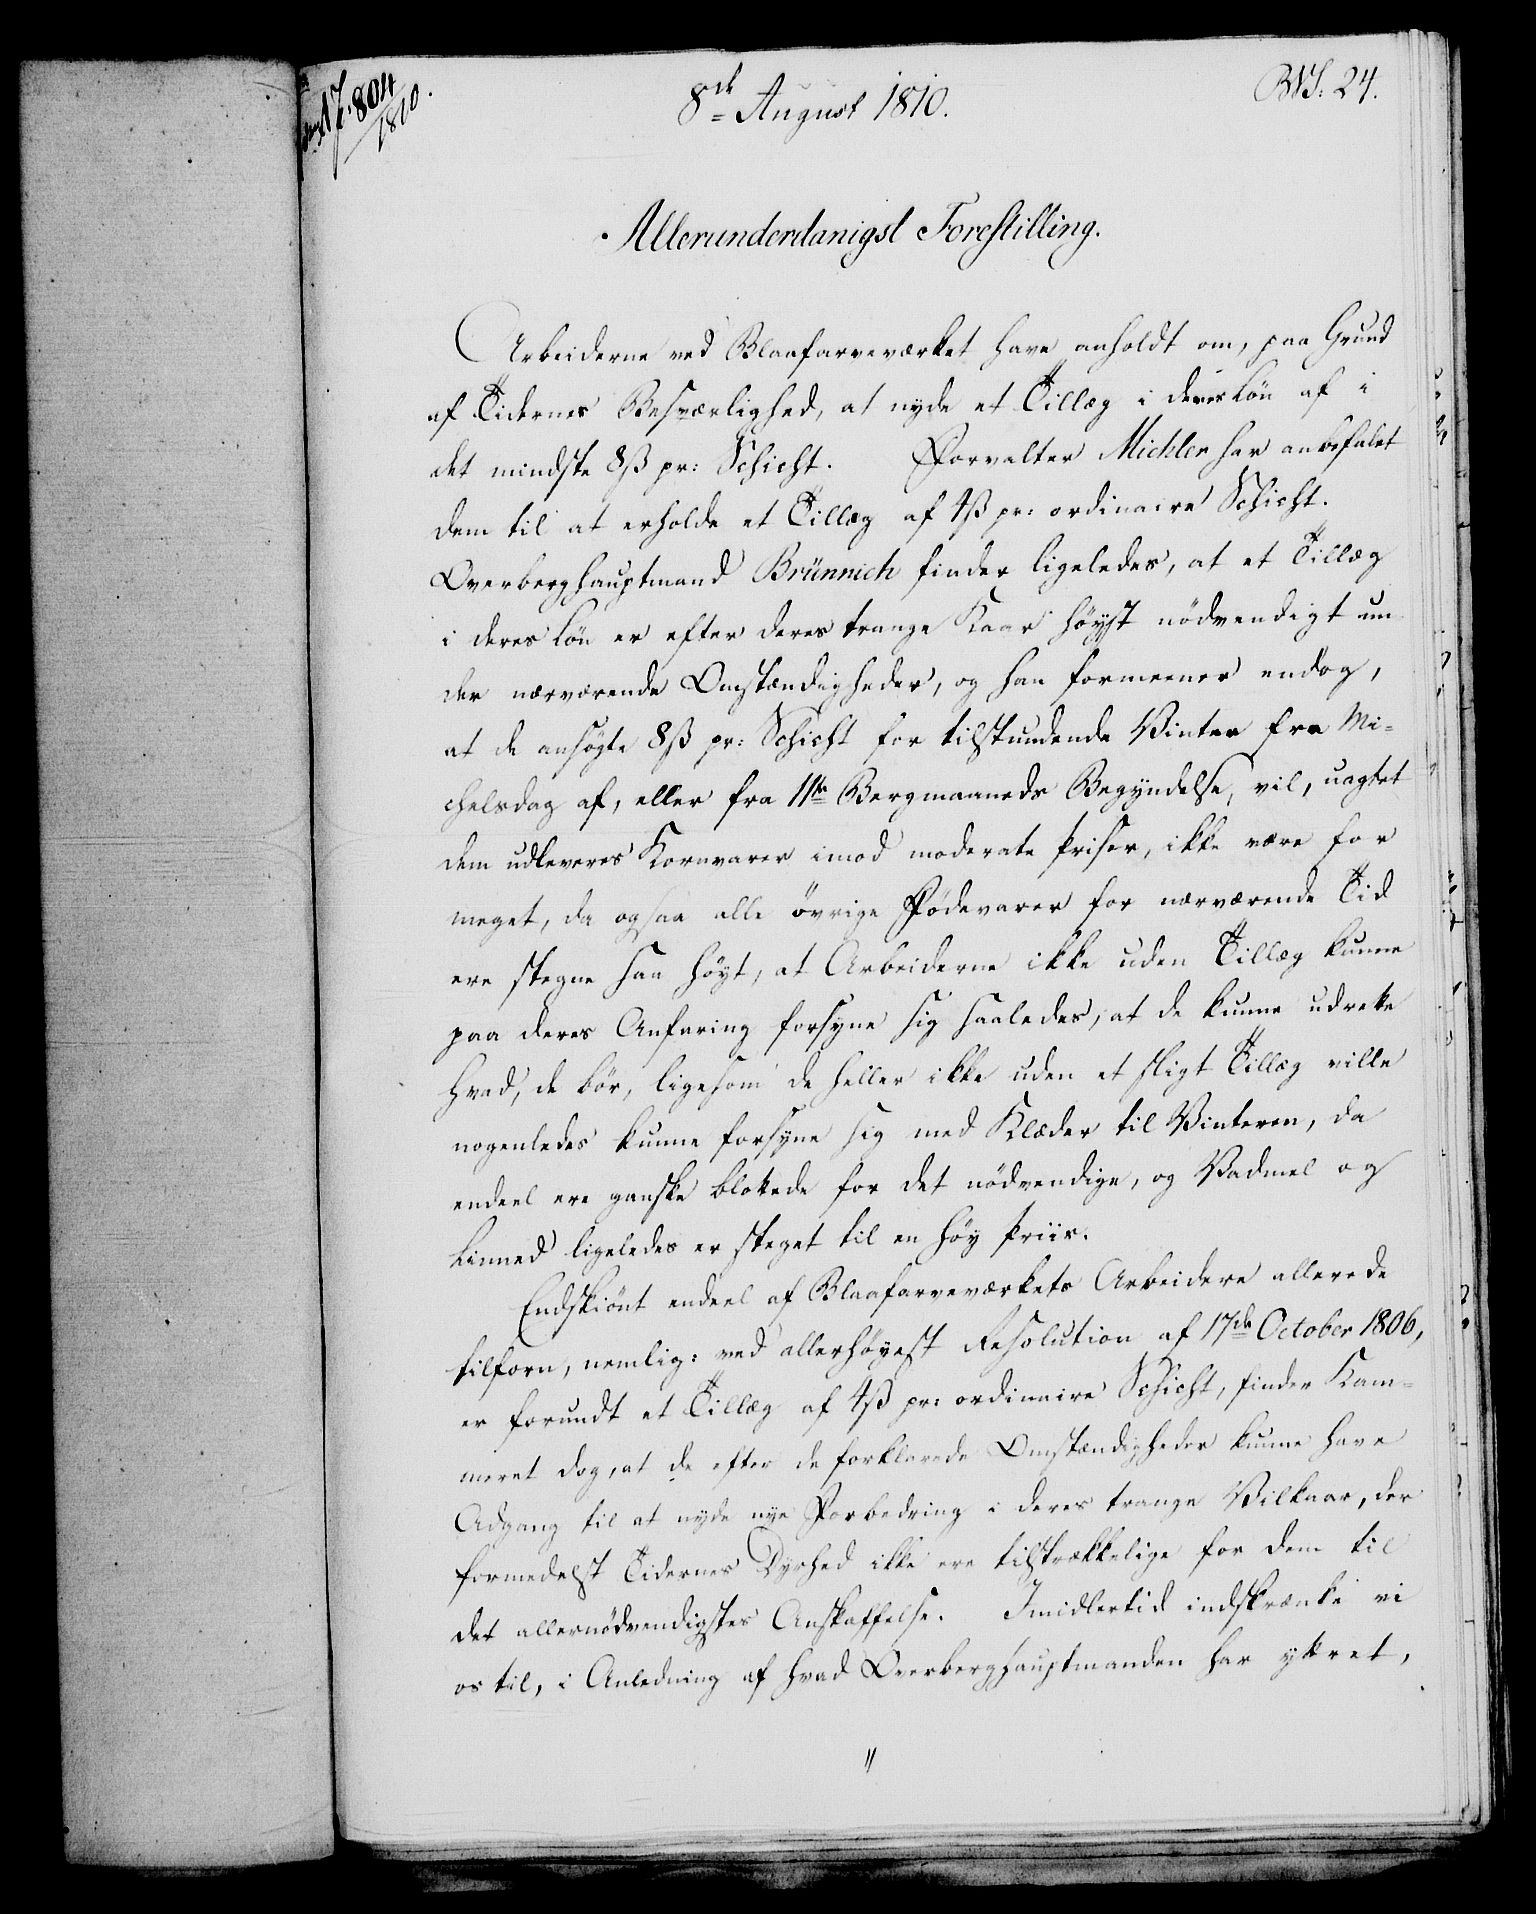 804
1810.
8de August 1810.
24.
Allerunderdanigst Forestilling.
Arbeiderne ved Blaafarveværket have anholdt om, paa Grund
af Tidernes Besværlighed, at nyde et Tillæg i deres Løn af i
det mindste 8ß pr: Schicht. Forvalter Michler har anbefalet
dem til at erholde et Tillæg af 4ß pr: ordinaire Schicht.
Overberghauptmand Brünnich finder ligeledes, at et Tillæg
i deres Løn er efter deres trange Kaar höyst nödvendigt un-
der nærværende Omstændigheder, og han formeener endog,
at de ansögte 8ß pr: Schicht for tilstundende Vinter fra Mi-
chelsdag af, eller fra 11te Bergmaaneds Begyndelse, vil, uagtet
dem udleveres Kornvarer imod moderate Priser, ikke være for
meget, da ogsaa alle övrige Födevarer for nærværende Tid
ere stegne saa höyt, at Arbeiderne ikke uden Tillæg kunne
paa deres Anfaring forsyne sig saaledes, at de kunne udrette
hvad, de bör, ligesom de heller ikke uden et sligt Tillæg ville
nogenledes kunne forsyne sig med Klæder til Vinteren, da
endeel ere ganske blottede for det nödvendige, og Vadmel og
Linned ligeledes er steget til en höy Priis.
Endskiönt endeel af Blaafarveværkets Arbeidere allerede
tilforn, nemlig: ved allerhöyest Resolution af 17de October 1806,
er forundt et Tillæg af 4ß pr: ordinaire Schicht, finder Kam-
meret dog, at de efter de forklarede Omstændigheder kunne have
Adgang til at nyde nye Forbedring i deres trange Vilkaar, der
formedelst Tidernes Dyrhed ikke ere tilstrækkelige for dem til
det allernödvendigstes Anskaffelse. Imidlertid indskrænke vi
os til, i Anledning af hvad Overberghauptmanden har yttret,